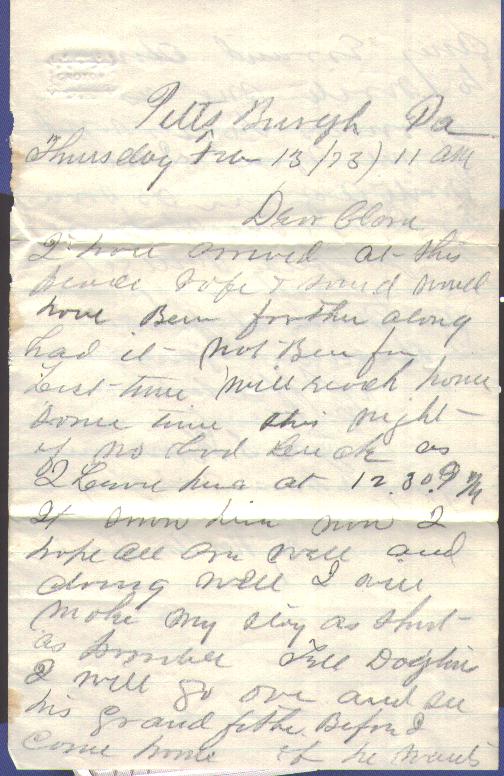 CROTON
Pitts Burgh Pa
Thursday 13/73) 11 am
Dear Clara
I have arrived at this
place safe & sound would
have Been farther along
had it not Been for
Lost time will reach home
some time this night
if no bad Luck as
I Leave here at 12.30 PM
It now I
hope all are well and
doing well I will
make my stay as short
as Tell
I will go over and see
his Grand father Before I
Come home if he wants